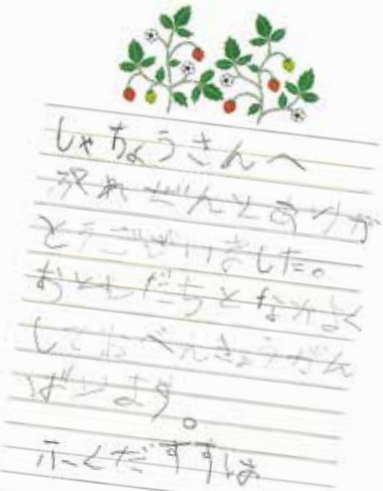 しゃちょうさんへ
ぷれぜんとありが
とうございました。
おともだちとなかよく
しておべんきょうがん
ばります。
ふくだすずほ